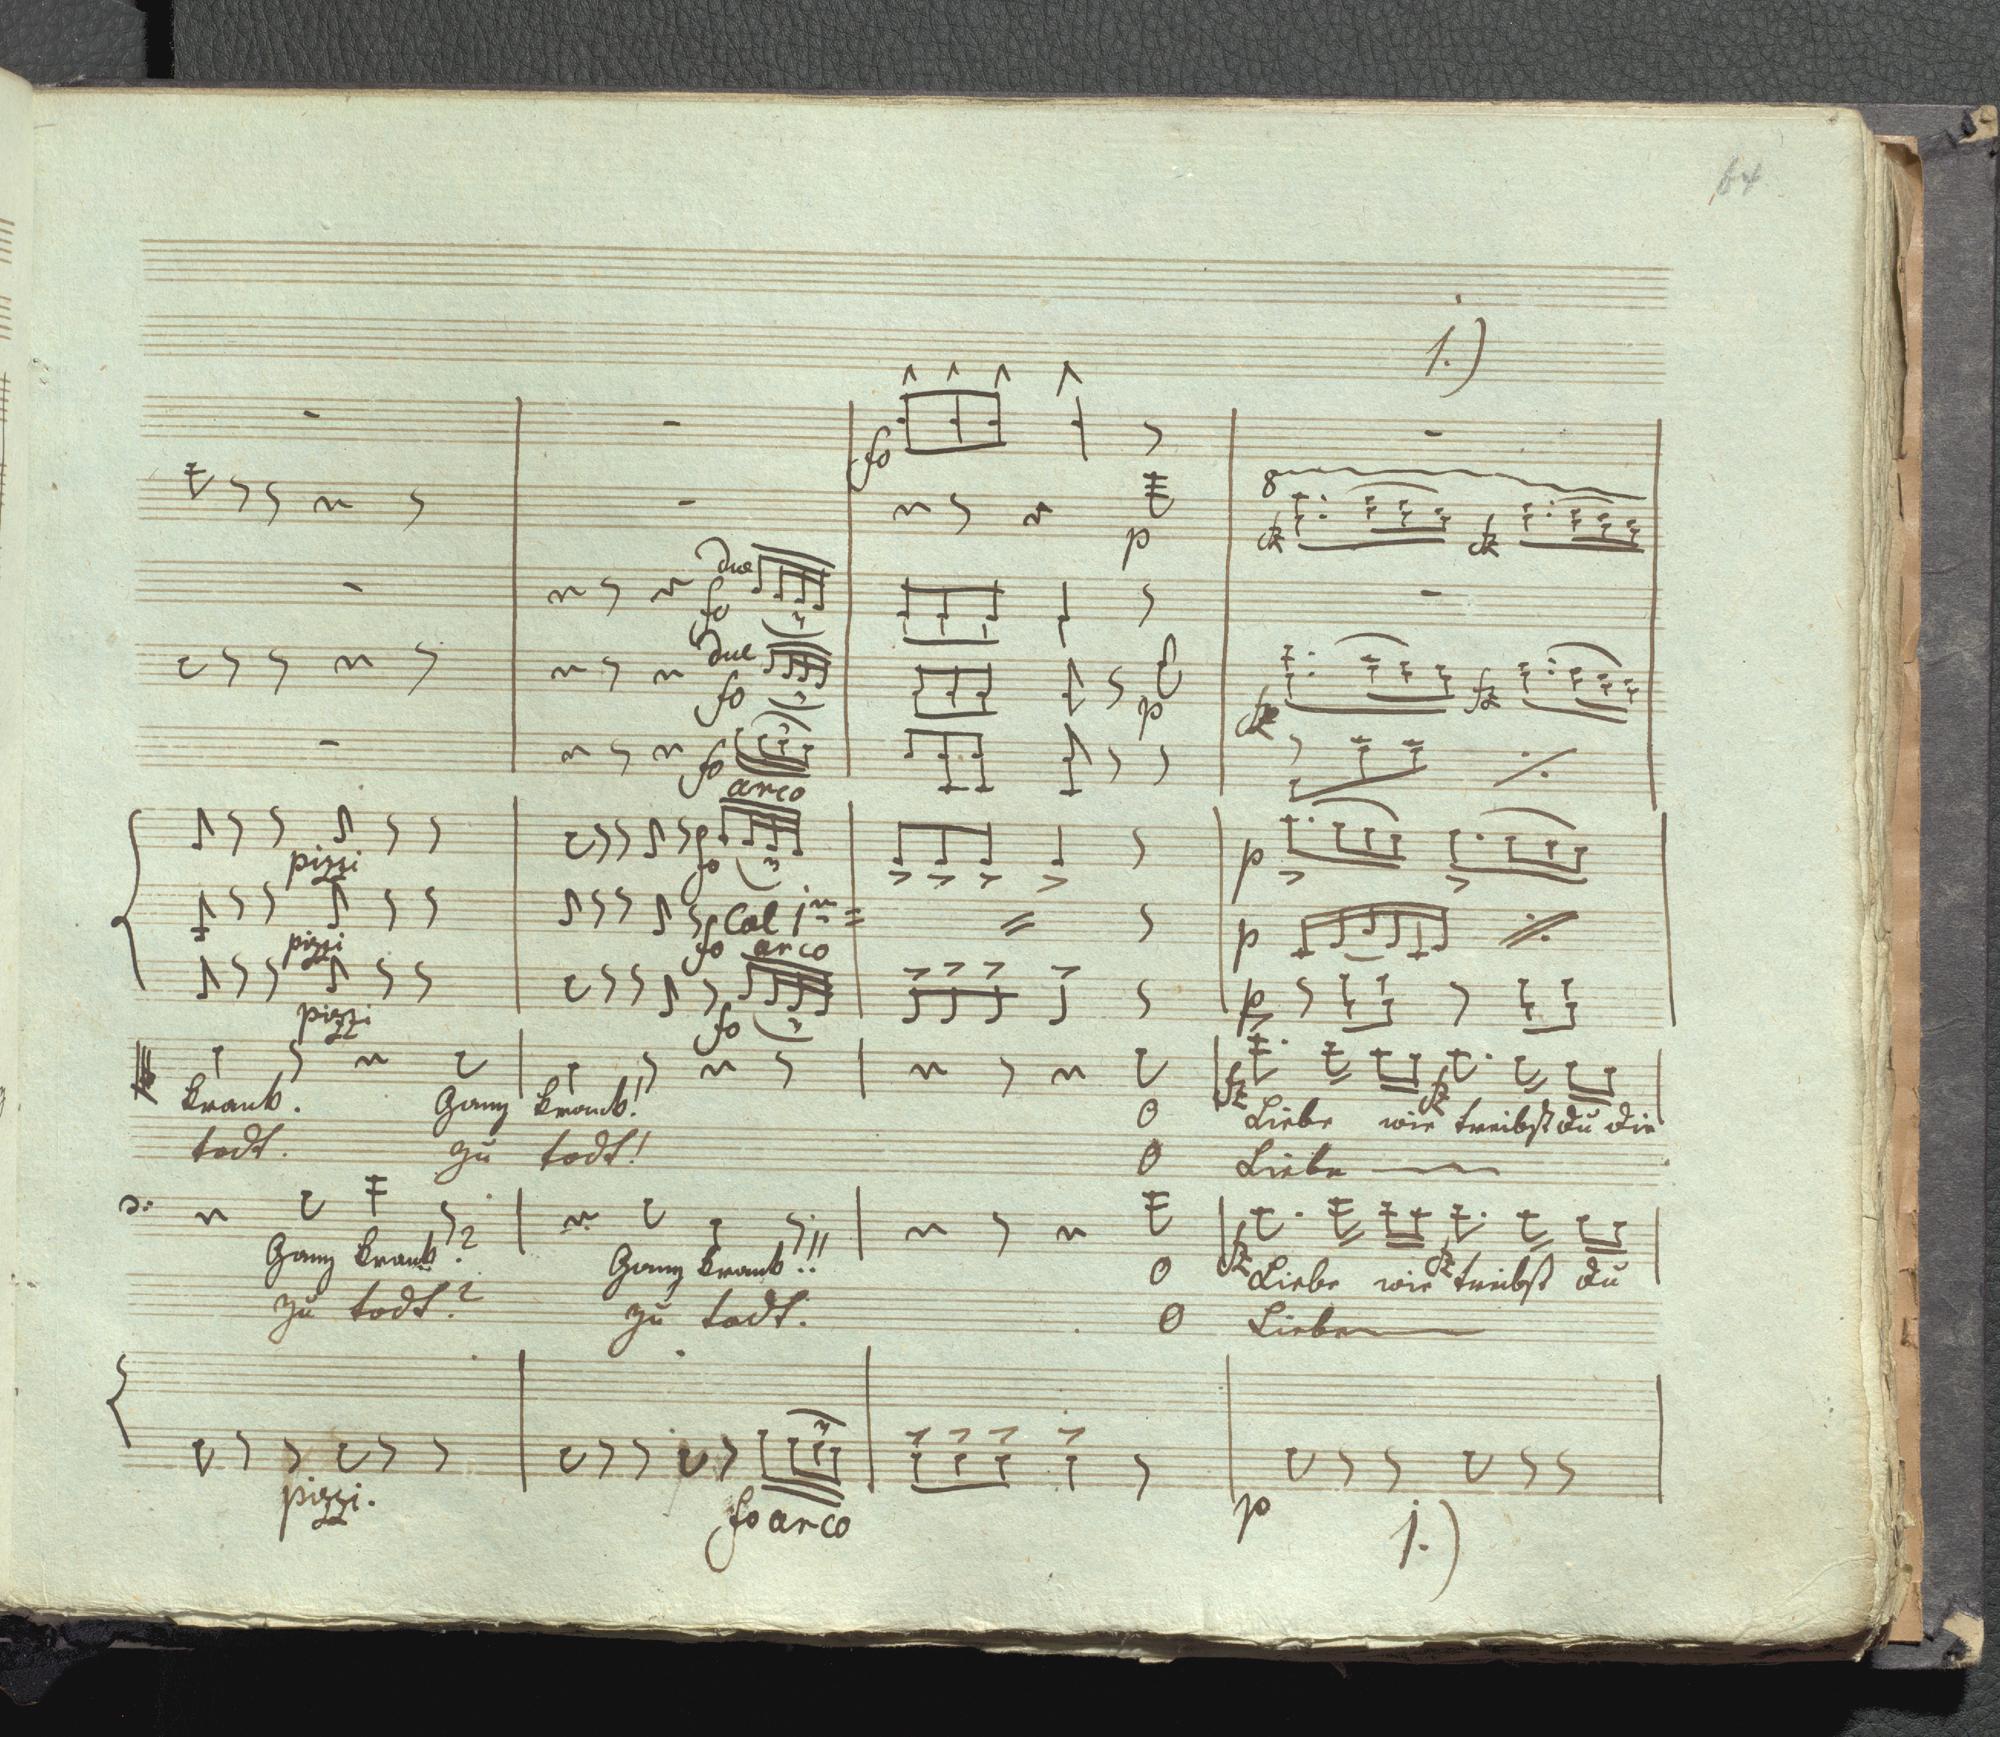 64
1.)
fo
p
8
fz fz
due
fo
due
fo
p
fz fz
fo
arco
pizzi
fo
3
p
pizzi
Col 1mo
fo arco
p
pizzi
fo
3
p
fz fz
krank. Ganz krank! O Liebe wie treibst du die
todt. zu todt! O Liebe
fz fz
Ganz krank? Ganz krank!! O Liebe wie treibst du
zu todt? zu todt. O Liebe
3
pizzi.
fo arco
p
1.)